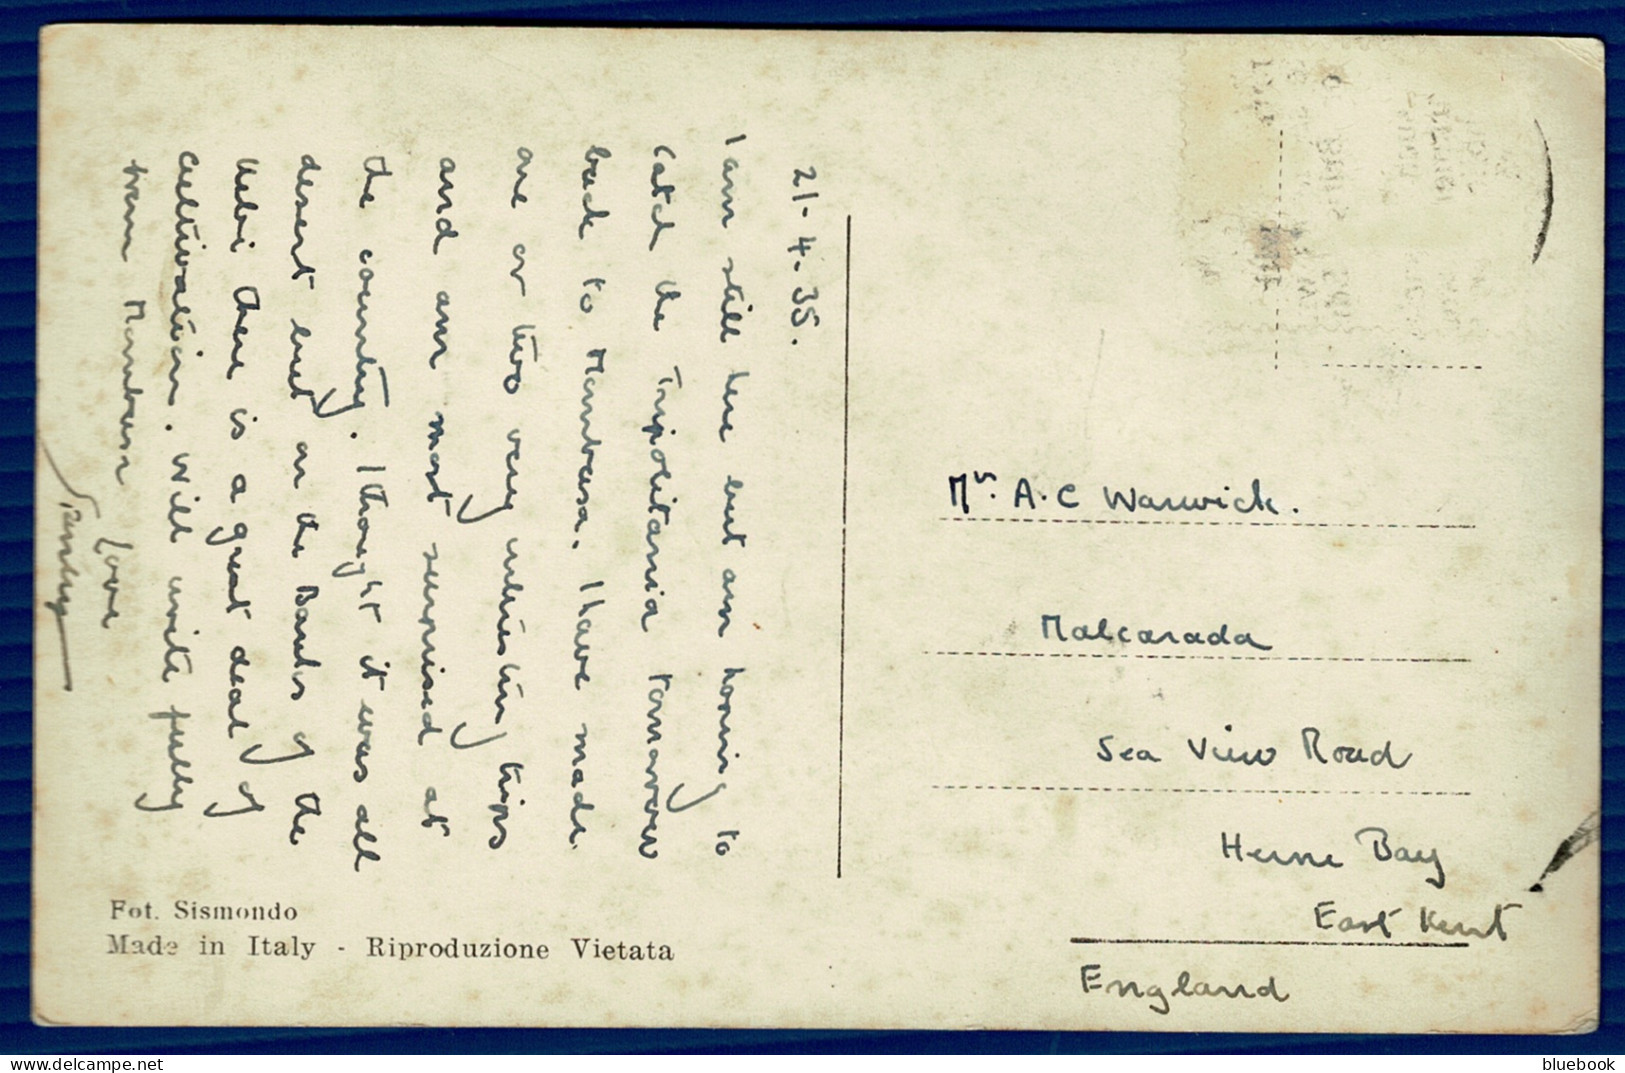 21-4-35.
I am still here but am hoping to
catch the Tripolitania tomorrow
back to Mombasa. I have made
one or two very interesting trips
and am most surprised at
the country. I thought it was all
desert but on the Banks of the
Uebi there is a great deal of
cultivation. Will write fully
from Mombasa
love
Stanley
Fot. Sismondo
Made in Italy - Riproduzione Vietata
Mrs. A.C Warwick.
Malcarada
Sea View Road
Herne Bay
East Kent
England
bluebook